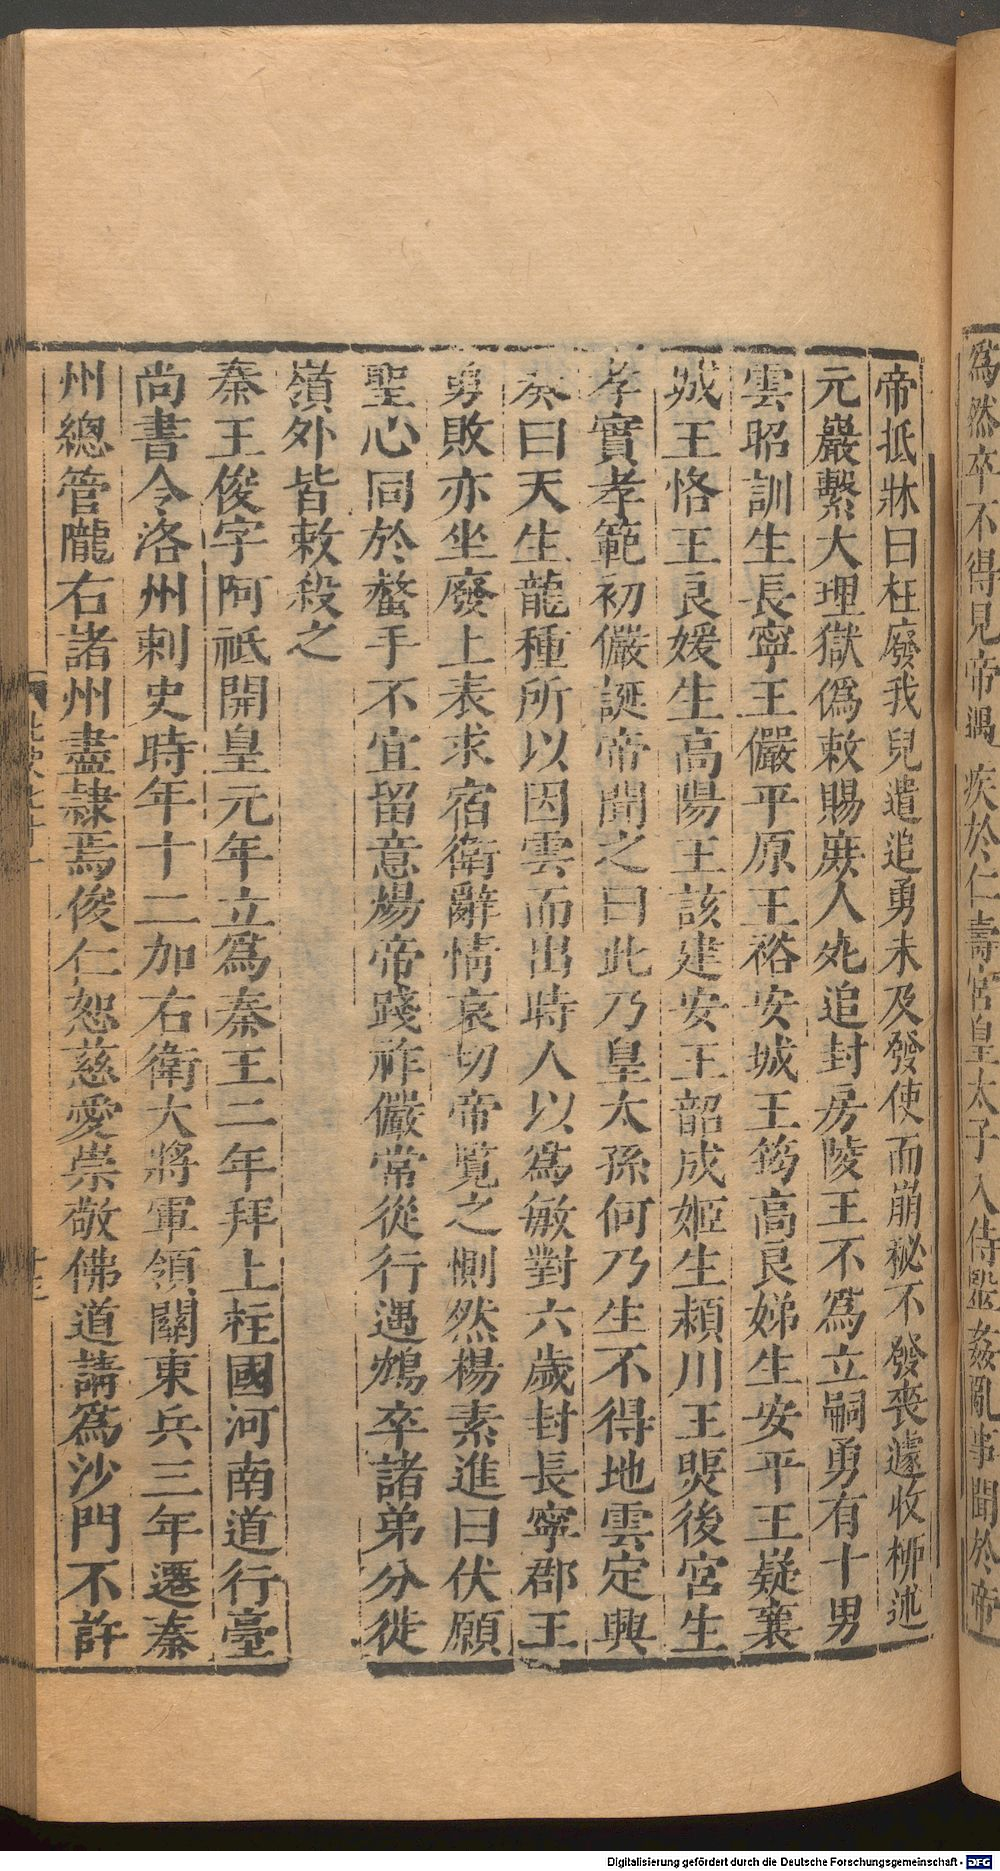 爲然卒不得見帝遇疾於仁壽宮皇太子入侍毉姦亂事聞於帝
帝抵牀曰枉廢我兒遣追勇未及發使而崩秘不發喪遽收柳述
元巖繫大理獄僞敕賜庶人死追封房陵王不爲立嗣勇有十男
雲昭訓生長寧王儼平原王裕安城王筠高良娣生安平王嶷襄
城王恪王良媛生高陽王該建安王韶成姬生頴川王煚後宮生
孝實孝範初儼誕帝聞之曰此乃皇太孫何乃生不得地雲定興
奏曰天生龍種所以因雲而出時人以爲敏對六歲封長寧郡王
勇敗亦坐廢上表求宿衛辭情哀切帝覽之惻然楊素進曰伏願
聖心同於螫手不宜留意煬帝踐祚儼常從行遇鴆卒諸弟分徙
嶺外皆敕殺之
秦王俊字阿祗開皇元年立爲秦王二年拜上柱國河南道行臺
尚書令洛州刺史時年十二加右衛大將軍領關東兵三年遷秦
州總管隴右諸州盡隸焉俊仁恕慈愛崇敬佛道請爲沙門不許
Digitalisierung gefördert durch die Deutsche Forschungsgemeinschaft - DFG